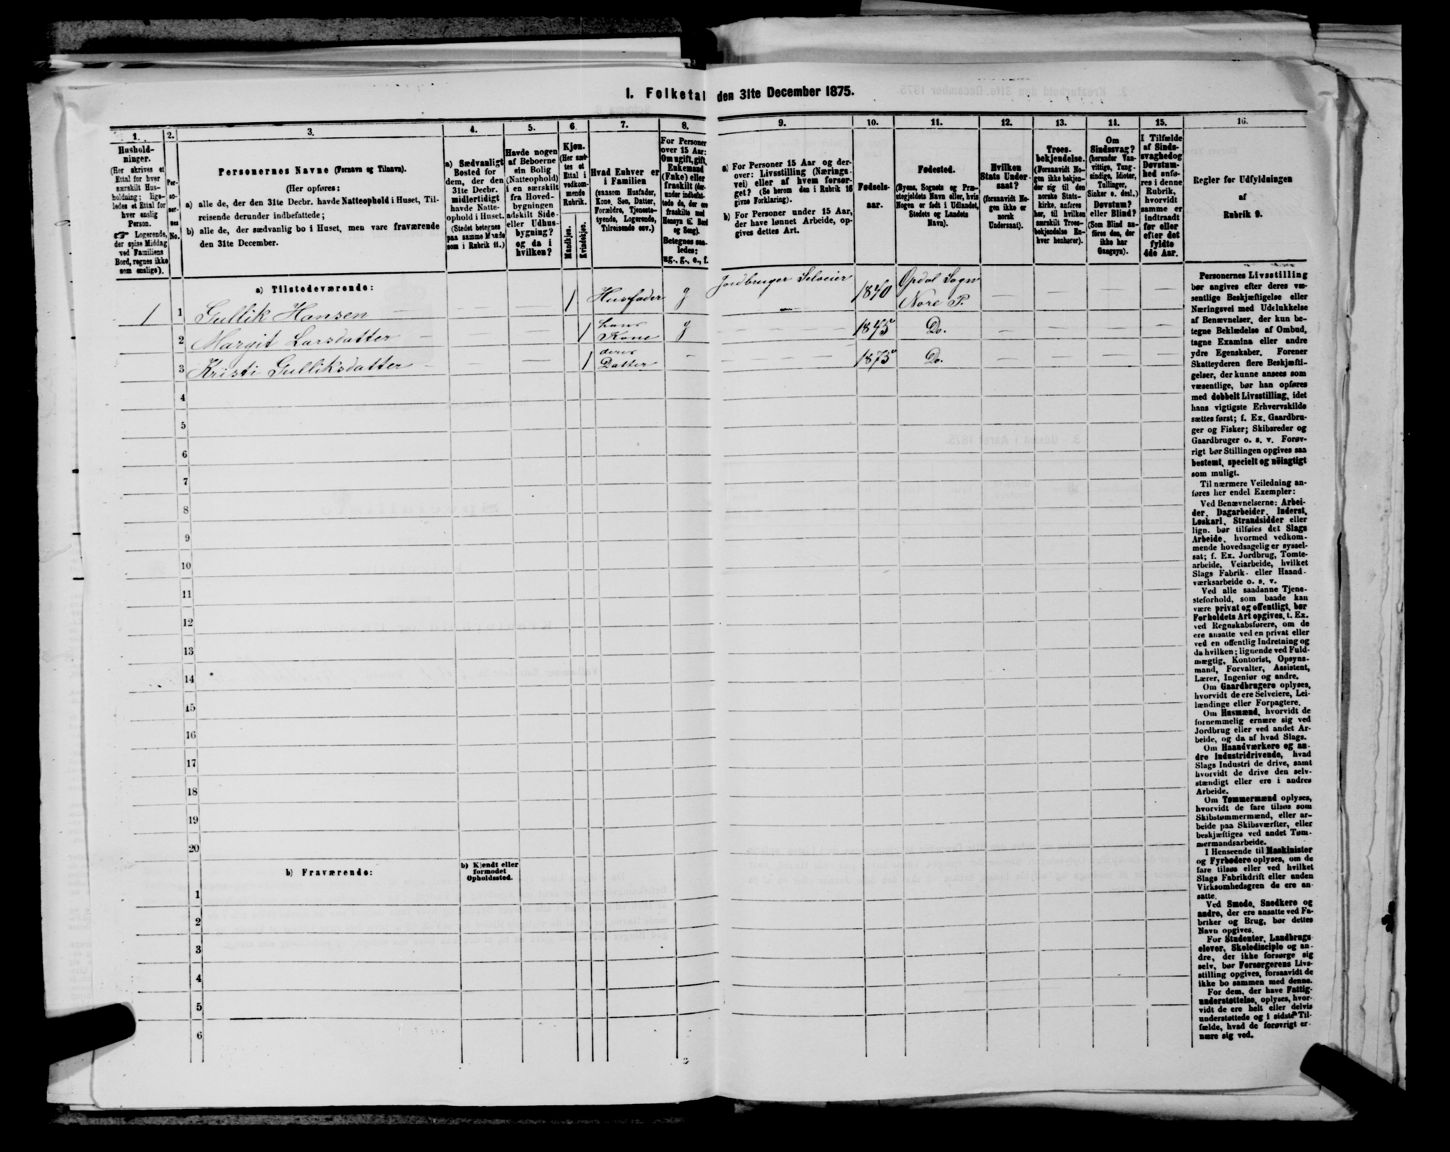 I. Folketal den 31te December 1875.
1. 2. 3. 4. 5. 6. 7. 8. 9. 10. 11. 12. 13. 14. 15. 16.
Hushold-
ninger.
(Her skrives et
Ettal for hver
særskilt Hus-
holdning; lige-
ledes et Ettal for
hver enslig
Person.
Logerende,
der spise Middag
ved Familiens
Bord, regnes ikke
som enslige).
Per-
so-
ner-
nes
No.
Personernes Navne (Fornavn og Tilnavn).
(Her opføres:
a) alle de, der den 31te Decbr. havde Natteophold i Huset, Til-
reisende derunder indbefattede;
b) alle de, der sædvanlig bo i Huset, men vare fraværende
den 31te December.
a) Sædvanligt
Bosted for
dem, der den
31te Decbr.
midlertidigt
havde Natte-
ophold i Huset.
(Stedet betegnes
paa samme Maade
som i Rubrik 11.)
Havde nogen
af Beboerne
sin Bolig
(Natteophold)
i en særskilt
fra Hoved-
bygningen
adskilt Side-
eller Udhus-
bygning?
og da i
hvilken?
Kjøn.
(Her sæt-
tes et
Ettal i
vedkom-
mende
Rubrik.
Mandkjøn.
Kvindekjøn.
Hvad Enhver er
i Familien
(saasom Husfader,
Kone, Søn, Datter,
Forældre, Tjeneste-
tyende, Logerende,
Tilreisende osv.)
For Personer
over 15 Aar:
Om ugift, gift,
Enkemand
(Enke) eller
fraskilt
Betegnes saa-
ledes:
ug., g., e., f.
a) For Personer 15 Aar og der-
over: Livsstilling (Nærings-
vei) eller af hvem forsør-
get? (Se herom den i Rubrik 16
givne Forklaring).
b) For Personer under 15 Aar,
der have lønnet Arbeide, op-
gives dettes Art.
Fødsels-
aar.
Fødested.
(Byens, Sognets og Præ-
stegjeldets Navn eller, hvis
Nogen er født i Udlandet,
Stedets og Landets
Navn).
Hvilken
Stats Under-
saat?
(forsaavidt No-
gen ikke er
norsk
Undersaat).
Troes-
bekjendelse.
(Forsaavidt No-
gen ikke bekjen-
der sig til den
norske Stats-
kirke, anføres
her, til hvilken
særskilt Troes-
bekjendelse En-
hver henhører).
Om
Sindssvag?
(herunder Van-
vittige, Tung-
sindige, Idioter,
Tullinger,
Sinker o. desl.)
Døvstum?
eller Blind?
(Som Blind an-
føres den, der
ikke har
Gangsyn).
I Tilfælde
af Sinds-
svaghed og
Døvstum-
hed anfø-
res i denne
Rubrik,
hvorvidt
samme er
indtraadt
før eller
efter det
fyldte
4de Aar.
Regler for Udfyldningen
af
Rubrik 9.
a) Tilstedeværende:
1 1 Gullik Hansen — — 1 Husfader g Jordbruger Selveier 1840 Opdal Sogn Nore P. — — — —
2 Margit Larsdatter — — — 1 hans Kone g — 1845 Do. — — — —
3 Kristi Gulliksdatter — — — 1 deres Datter — — 1875 Do. — — — —
4
5
6
7
8
9
10
11
12
13
14
15
16
17
18
19
20
b) Fraværende:
b) Kjendt eller
formodet
Opholdssted.
1
2
3
4
5
6
Personernes Livsstilling
bør angives efter deres væ-
sentlige Beskjæftigelse eller
Næringsvei med Udelukkelse
af Benævnelser, der kun be-
tegne Bekledelse af Ombud,
tagne Examina eller andre
ydre Egenskaber. Forener
Skatteyderen flere Beskjæfti-
gelser, der kunne ansees som
væsentlige, bør han opføres
med dobbelt Livsstilling, idet
hans vigtigste Erhvervskilde
sættes først; f. Ex. Gaardbru-
ger og Fisker; Skibsreder og
Gaardbruger o. s. v. Forøv-
rigt bør Stillingen opgives saa
bestemt, specielt og nøiagtigt
som muligt.
Til nærmere Veiledning an-
føres her endel Exempler:
Ved Benævnelserne: Arbei-
der, Dagarbeider, Inderst,
Løskarl, Strandsidder eller
lign. bør tilføies det Slags
Arbeide, hvormed vedkom-
mende hovedsagelig er syssel-
sat; f. Ex. Jordbrug, Tomte-
arbeide, Veiarbeide, hvilket
Slags Fabrik- eller Haand-
værksarbeide o. s. v.
Ved alle saadanne Tjene-
steforhold, som baade kan
være privat og offentligt, bør
Forholdets Art opgives, t. Ex.
ved Regnskabsførere, om de
ere ansatte ved en privat eller
ved en offentlig Indretning og
da hvilken; lignende ved Fuld-
mægtig, Kontorist, Opsyns-
mand, Forvalter, Assistent,
Lærer, Ingeniør og andre.
Om Gaardbrugere oplyses,
hvorvidt de ere Selveiere, Lei-
lændinge eller Forpagtere.
Om Husmænd, hvorvidt de
fornemmelig ernære sig ved
Jordbrug eller ved andet Ar-
beide, og da af hvad Slags.
Om Haandværkere og an-
dre Industridrivende, hvad
Slags Industri de drive, samt
hvorvidt de drive den selv-
stændigt eller ere i andres
Arbeide.
Om Tømmermænd oplyses,
hvorvidt de fare tilsøs som
Skibstømmermænd, eller ar-
beide paa Skibsværfter, eller
beskjæftiges ved andet Tøm-
mermandsarbeide.
I Henseende til Maskinister
og Fyrbødere oplyses, om de
fare tilsøs eller ved hvilket
Slags Fabrikdrift eller anden
Virksomhedsgren de ere an-
satte.
Ved Smede, Snedkere og
andre, der ere ansatte ved Fa-
briker og Brug, bør dettes
Navn opgives.
For Studenter, Landbrugs-
elever, Skoledisciple og an-
dre, der ikke forsørge sig
selv, bør Forsørgerens Livs-
stilling opgives, forsaavidt de
ikke bo sammen med denne.
For dem, der have Fattig-
understøttelse, oplyses, hvor-
vidt de ere helt eller delvis
understøttede og i sidste Til-
fælde, hvad de forøvrigt er-
nære sig ved.